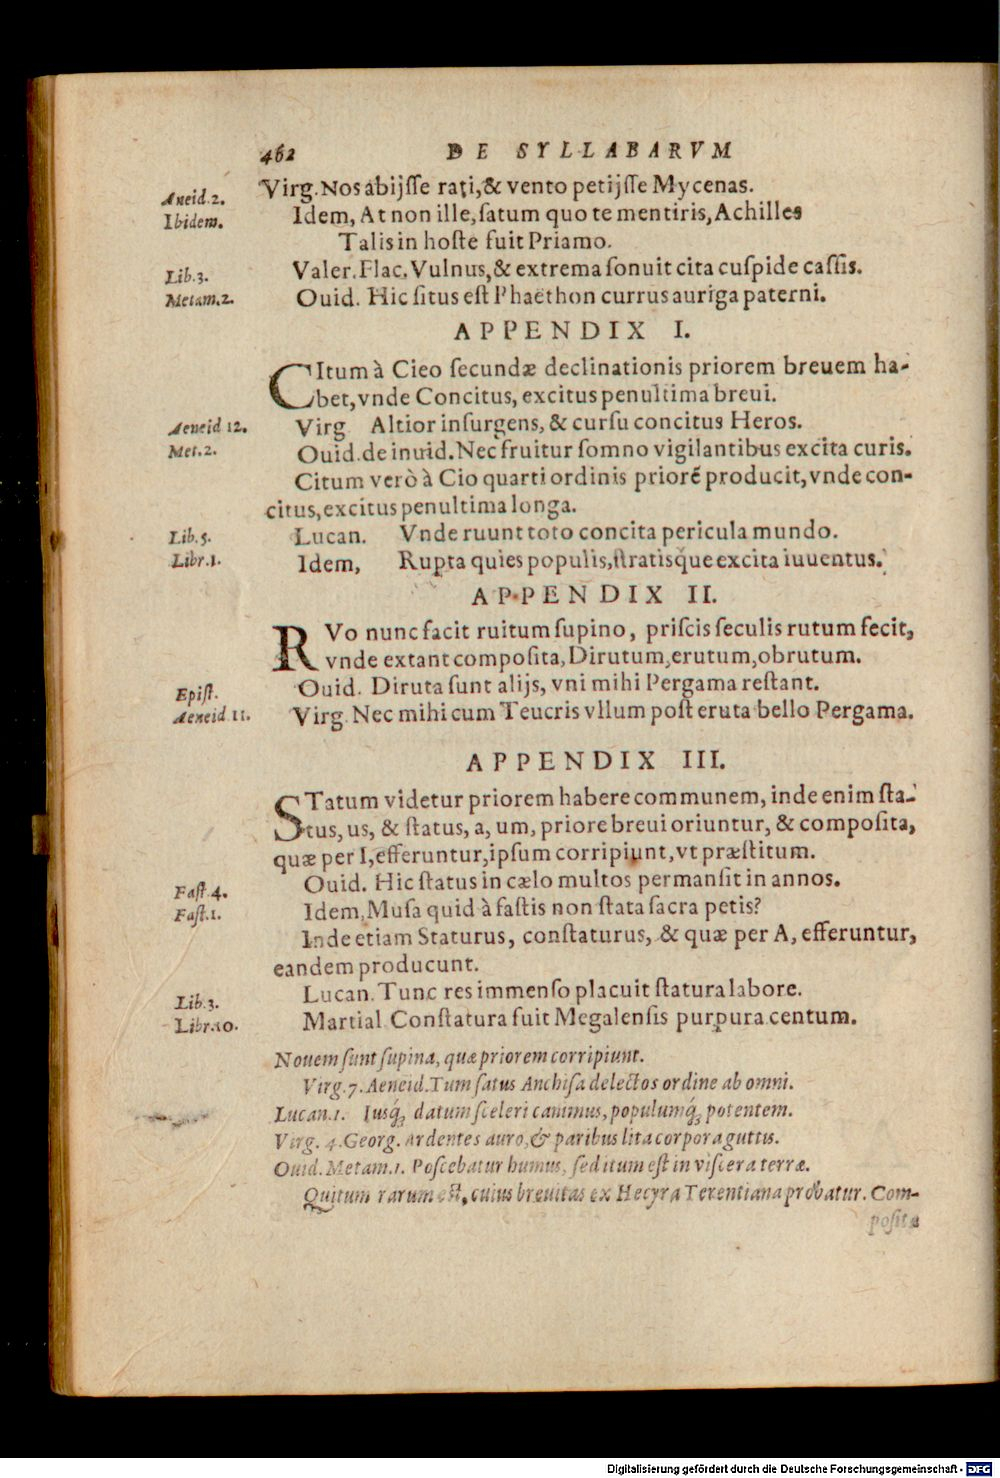 462 DE SYLLABARVM
Aneid.2. Virg. Nos abijſſe rati, & vento petijſſe Mycenas.
Ibidem. Idem, At non ille, ſatum quo te mentiris, Achilles
Talis in hoſte fuit Priamo.
Lib.3. Valer. Flac. Vulnus, & extrema ſonuit cita cuſpide caſſis.
Metam.2. Ouid. Hic ſitus eſt Phaëthon currus auriga paterni.
APPENDIX I.
CItum à Cieo ſecundæ declinationis priorem breuem ha-
bet, vnde Concitus, excitus penultima breui.
Aeneid 12. Virg Altior inſurgens, & curſu concitus Heros.
Met.2. Ouid. de inuid. Nec fruitur ſomno vigilantibus excita curis.
Citum verò à Cio quarti ordinis priorē producit, vnde con-
citus, excitus penultima longa.
Lib.5. Lucan. Vnde ruunt toto concita pericula mundo.
Libr.1. Idem, Rupta quies populis, ſtratisque excita iuuentus.
APPENDIX II.
RVo nunc facit ruitum ſupino, priſcis ſeculis rutum fecit,
vnde extant compoſita, Dirutum, erutum, obrutum.
Epiſt. Ouid. Diruta ſunt alijs, vni mihi Pergama reſtant.
Aeneid.11. Virg. Nec mihi cum Teucris vllum poſt eruta bello Pergama.
APPENDIX III.
STatum videtur priorem habere communem, inde enim ſta-
tus, us, & ſtatus, a, um, priore breui oriuntur, & compoſita,
quæ per I, efferuntur, ipſum corripiunt, vt præſtitum.
Faſt.4. Ouid. Hic ſtatus in cælo multos permanſit in annos.
Faſt.1. Idem, Muſa quid à faſtis non ſtata ſacra petis?
Inde etiam Staturus, conſtaturus, & quæ per A, efferuntur,
eandem producunt.
Lib.3. Lucan. Tunc res immenſo placuit ſtatura labore.
Libr.10. Martial Conſtatura fuit Megalenſis purpura centum.
Nouem ſunt ſupina, quæ priorem corripiunt.
Virg. 7. Aeneid. Tum ſatus Anchiſa delectos ordine ab omni.
Lucan. 1. Iusq́; datum ſceleri canimus, populumq́; potentem.
Virg. 4. Georg. Ardentes auro, & paribus lita corpora guttis.
Ouid. Metam. 1. Poſcebatur humus, ſed itum eſt in viſcera terræ.
Quitum rarum eſt, cuius breuitas ex Hecyra Terentiana probatur. Com-
poſita
Digitalisierung gefördert durch die Deutsche Forschungsgemeinschaft - DFG